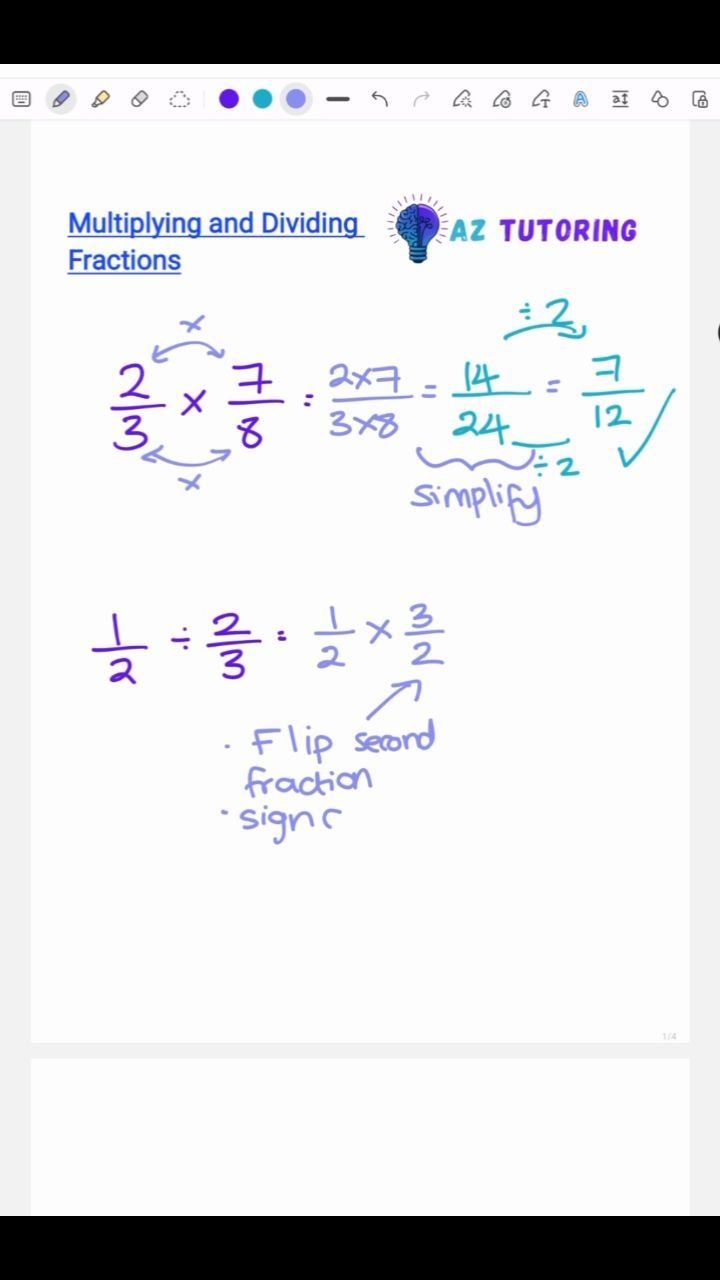 Multiplying and Dividing
Fractions
AZ TUTORING
÷ 2
x
2/3 x 7/8 = 2x7/3x8 = 14/24 = 7/12 ✓
x
÷ 2
simplify
1/2 ÷ 2/3 = 1/2 x 3/2
· Flip second
fraction
· sign c
1/4